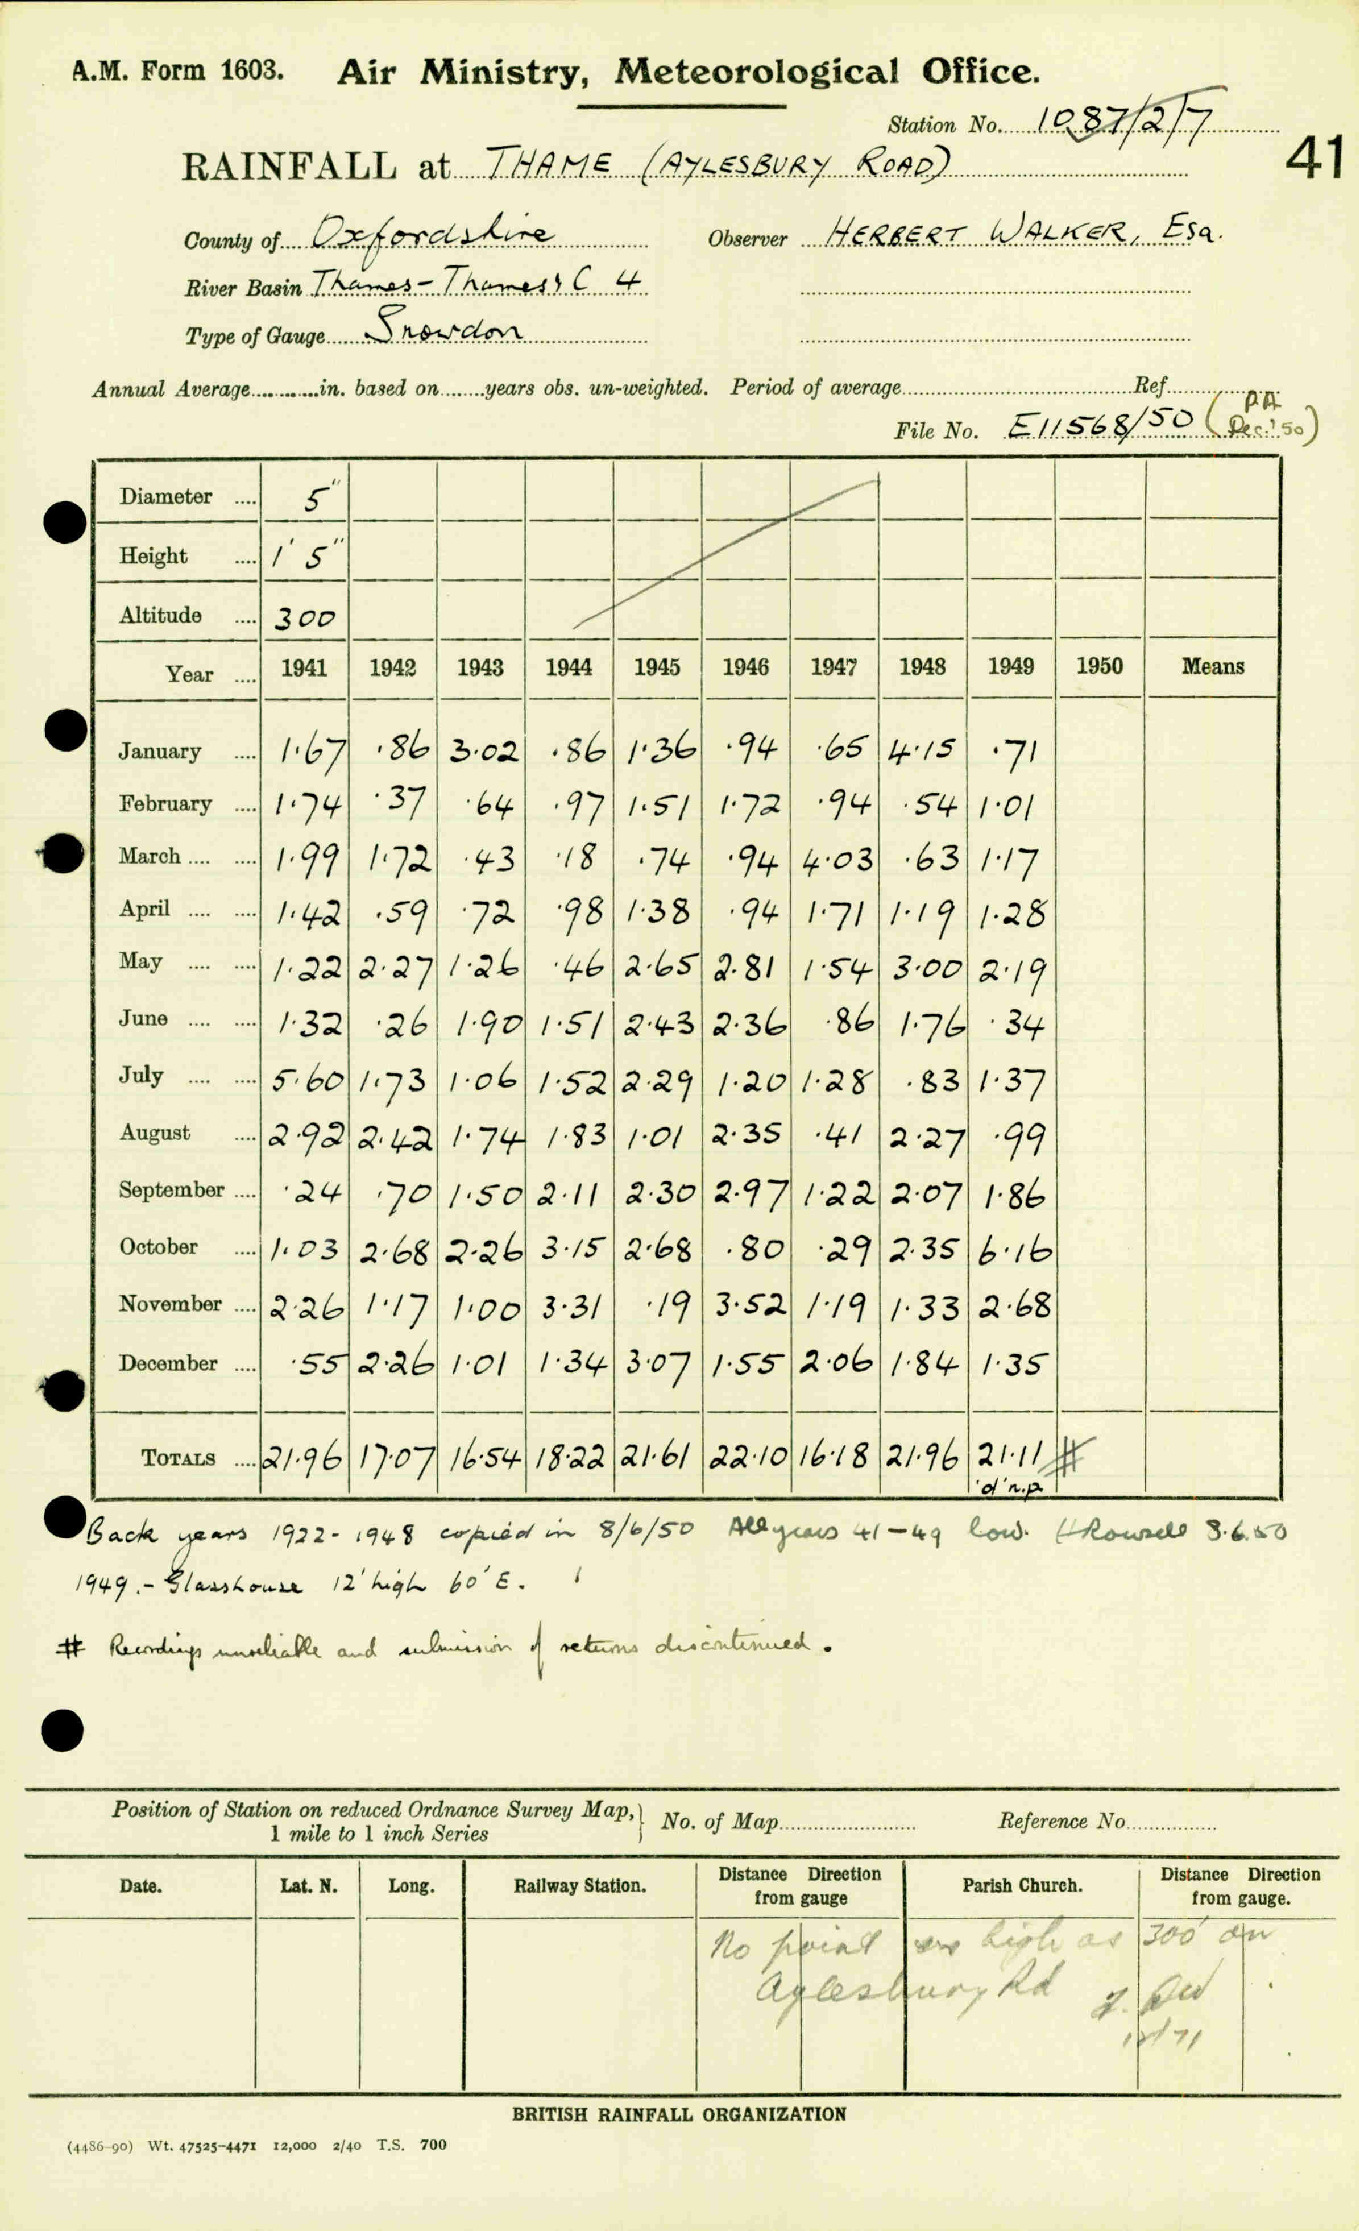 A.M. Form 1603. Air Ministry, Meteorological Office.
Station No. 1087/2/7
41
RAINFALL at THAME (AYLESBURY ROAD)
County of Oxfordshire Observer HERBERT WALKER, Esq.
River Basin Thames - Thames & C 4
Type of Gauge Snowdon
Annual Average............in. based on.......years obs. un-weighted. Period of average.......... Ref..........
File No. E11568/50 (PA Dec. '50)
Diameter .... 5"
Height .... 1' 5"
Altitude .... 300
Year .... 1941 1942 1943 1944 1945 1946 1947 1948 1949 1950 Means
January .... 1.67 .86 3.02 .86 1.36 .94 .65 4.15 .71
February .... 1.74 .37 .64 .97 1.51 1.72 .94 .54 1.01
March .... .... 1.99 1.72 .43 .18 .74 .94 4.03 .63 1.17
April .... .... 1.42 .59 .72 .98 1.38 .94 1.71 1.19 1.28
May .... .... 1.22 2.27 1.26 .46 2.65 2.81 1.54 3.00 2.19
June .... .... 1.32 .26 1.90 1.51 2.43 2.36 .86 1.76 .34
July .... .... 5.60 1.73 1.06 1.52 2.29 1.20 1.28 .83 1.37
August .... 2.92 2.42 1.74 1.83 1.01 2.35 .41 2.27 .99
September .... .24 .70 1.50 2.11 2.30 2.97 1.22 2.07 1.86
October .... 1.03 2.68 2.26 3.15 2.68 .80 .29 2.35 6.16
November .... 2.26 1.17 1.00 3.31 .19 3.52 1.19 1.33 2.68
December .... .55 2.26 1.01 1.34 3.07 1.55 2.06 1.84 1.35
TOTALS .... 21.96 17.07 16.54 18.22 21.61 22.10 16.18 21.96 21.11 #
'd' n.p.
Back years 1922 - 1948 copied in 8/6/50 All years 41-49 low. HRowsell 8.6.50
1949. - Glasshouse 12' high 60' E.
# Recordings unreliable and submission of returns discontinued.
Position of Station on reduced Ordnance Survey Map, } No. of Map.......... Reference No..........
1 mile to 1 inch Series
Date. Lat. N. Long. Railway Station. Distance Direction from gauge Parish Church. Distance Direction from gauge.
No point as high as 300' on
Aylesbury Rd
BRITISH RAINFALL ORGANIZATION
(4486-90) Wt. 47525-4471 12,000 2/40 T.S. 700